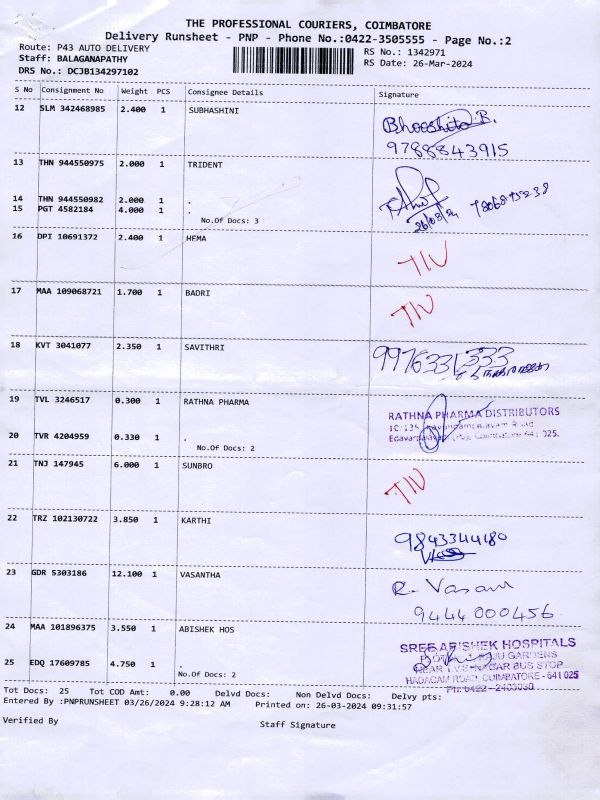 THE PROFESSIONAL COURIERS, COIMBATORE
Delivery Runsheet - PNP - Phone No.:0422-3505555 - Page No.:2
Route: P43 AUTO DELIVERY
RS No.: 1342971
Staff: BALAGANAPATHY
RS Date: 26-Mar-2024
DRS No.: DCJB134297102
S No Consignment No Weight PCS Consignee Details Signature
12 SLM 342468985 2.400 1 SUBHASHINI
Bhooshita R.
9788843915
13 THN 944550975 2.000 1 TRIDENT
14 THN 944550982 2.000 1 .
15 PGT 4582184 4.000 1 .
26/03/24
No.Of Docs: 3
16 DPI 10691372 2.400 1 HEMA
TIV
17 MAA 109068721 1.700 1 BADRI
TIV
18 KVT 3041077 2.350 1 SAVITHRI
9976331333
19 TVL 3246517 0.300 1 RATHNA PHARMA
RATHNA PHARMA DISTRIBUTORS
Road
20 TVR 4204959 0.330 1 .
Coimbatore 641 025.
No.Of Docs: 2
21 TNJ 147945 6.000 1 SUNBRO
TIV
22 TRZ 102130722 3.850 1 KARTHI
9843344180
23 GDR 5303186 12.100 1 VASANTHA
R. Vasan
9444000456
24 MAA 101896375 3.550 1 ABISHEK HOS
SREE ABISHEK HOSPITALS
GARDENS
25 EDQ 17609785 4.750 1 .
NEAR T.V.S. NAGAR BUS STOP
No.Of Docs: 2
ROAD, COIMBATORE - 641 025
Ph: 0422 -
Tot Docs: 25 Tot COD Amt: 0.00 Delvd Docs: Non Delvd Docs: Delvy pts:
Entered By :PNPRUNSHEET 03/26/2024 9:28:12 AM Printed on: 26-03-2024 09:31:57
Verified By
Staff Signature